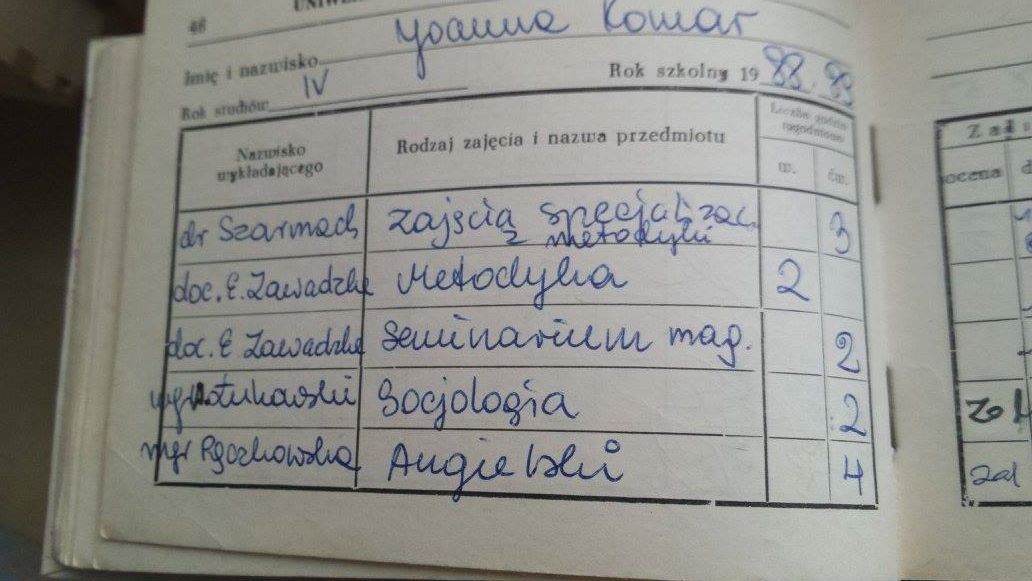 46
Imię i nazwisko Joanna Komar
Rok studiów IV Rok szkolny 19 88/89
Nazwisko wykładającego Rodzaj zajęcia i nazwa przedmiotu Liczba godzin tygodniowo
w. ćw.
dr Szarmach zajęcia specjalizac. z metodyki 3
doc. E. Zawadzka Metodyka 2
doc. E Zawadzka Seminarium mag. 2
mgr Socjologia 2
mgr Pączkowska Angielski 4
ocena
zal
zal